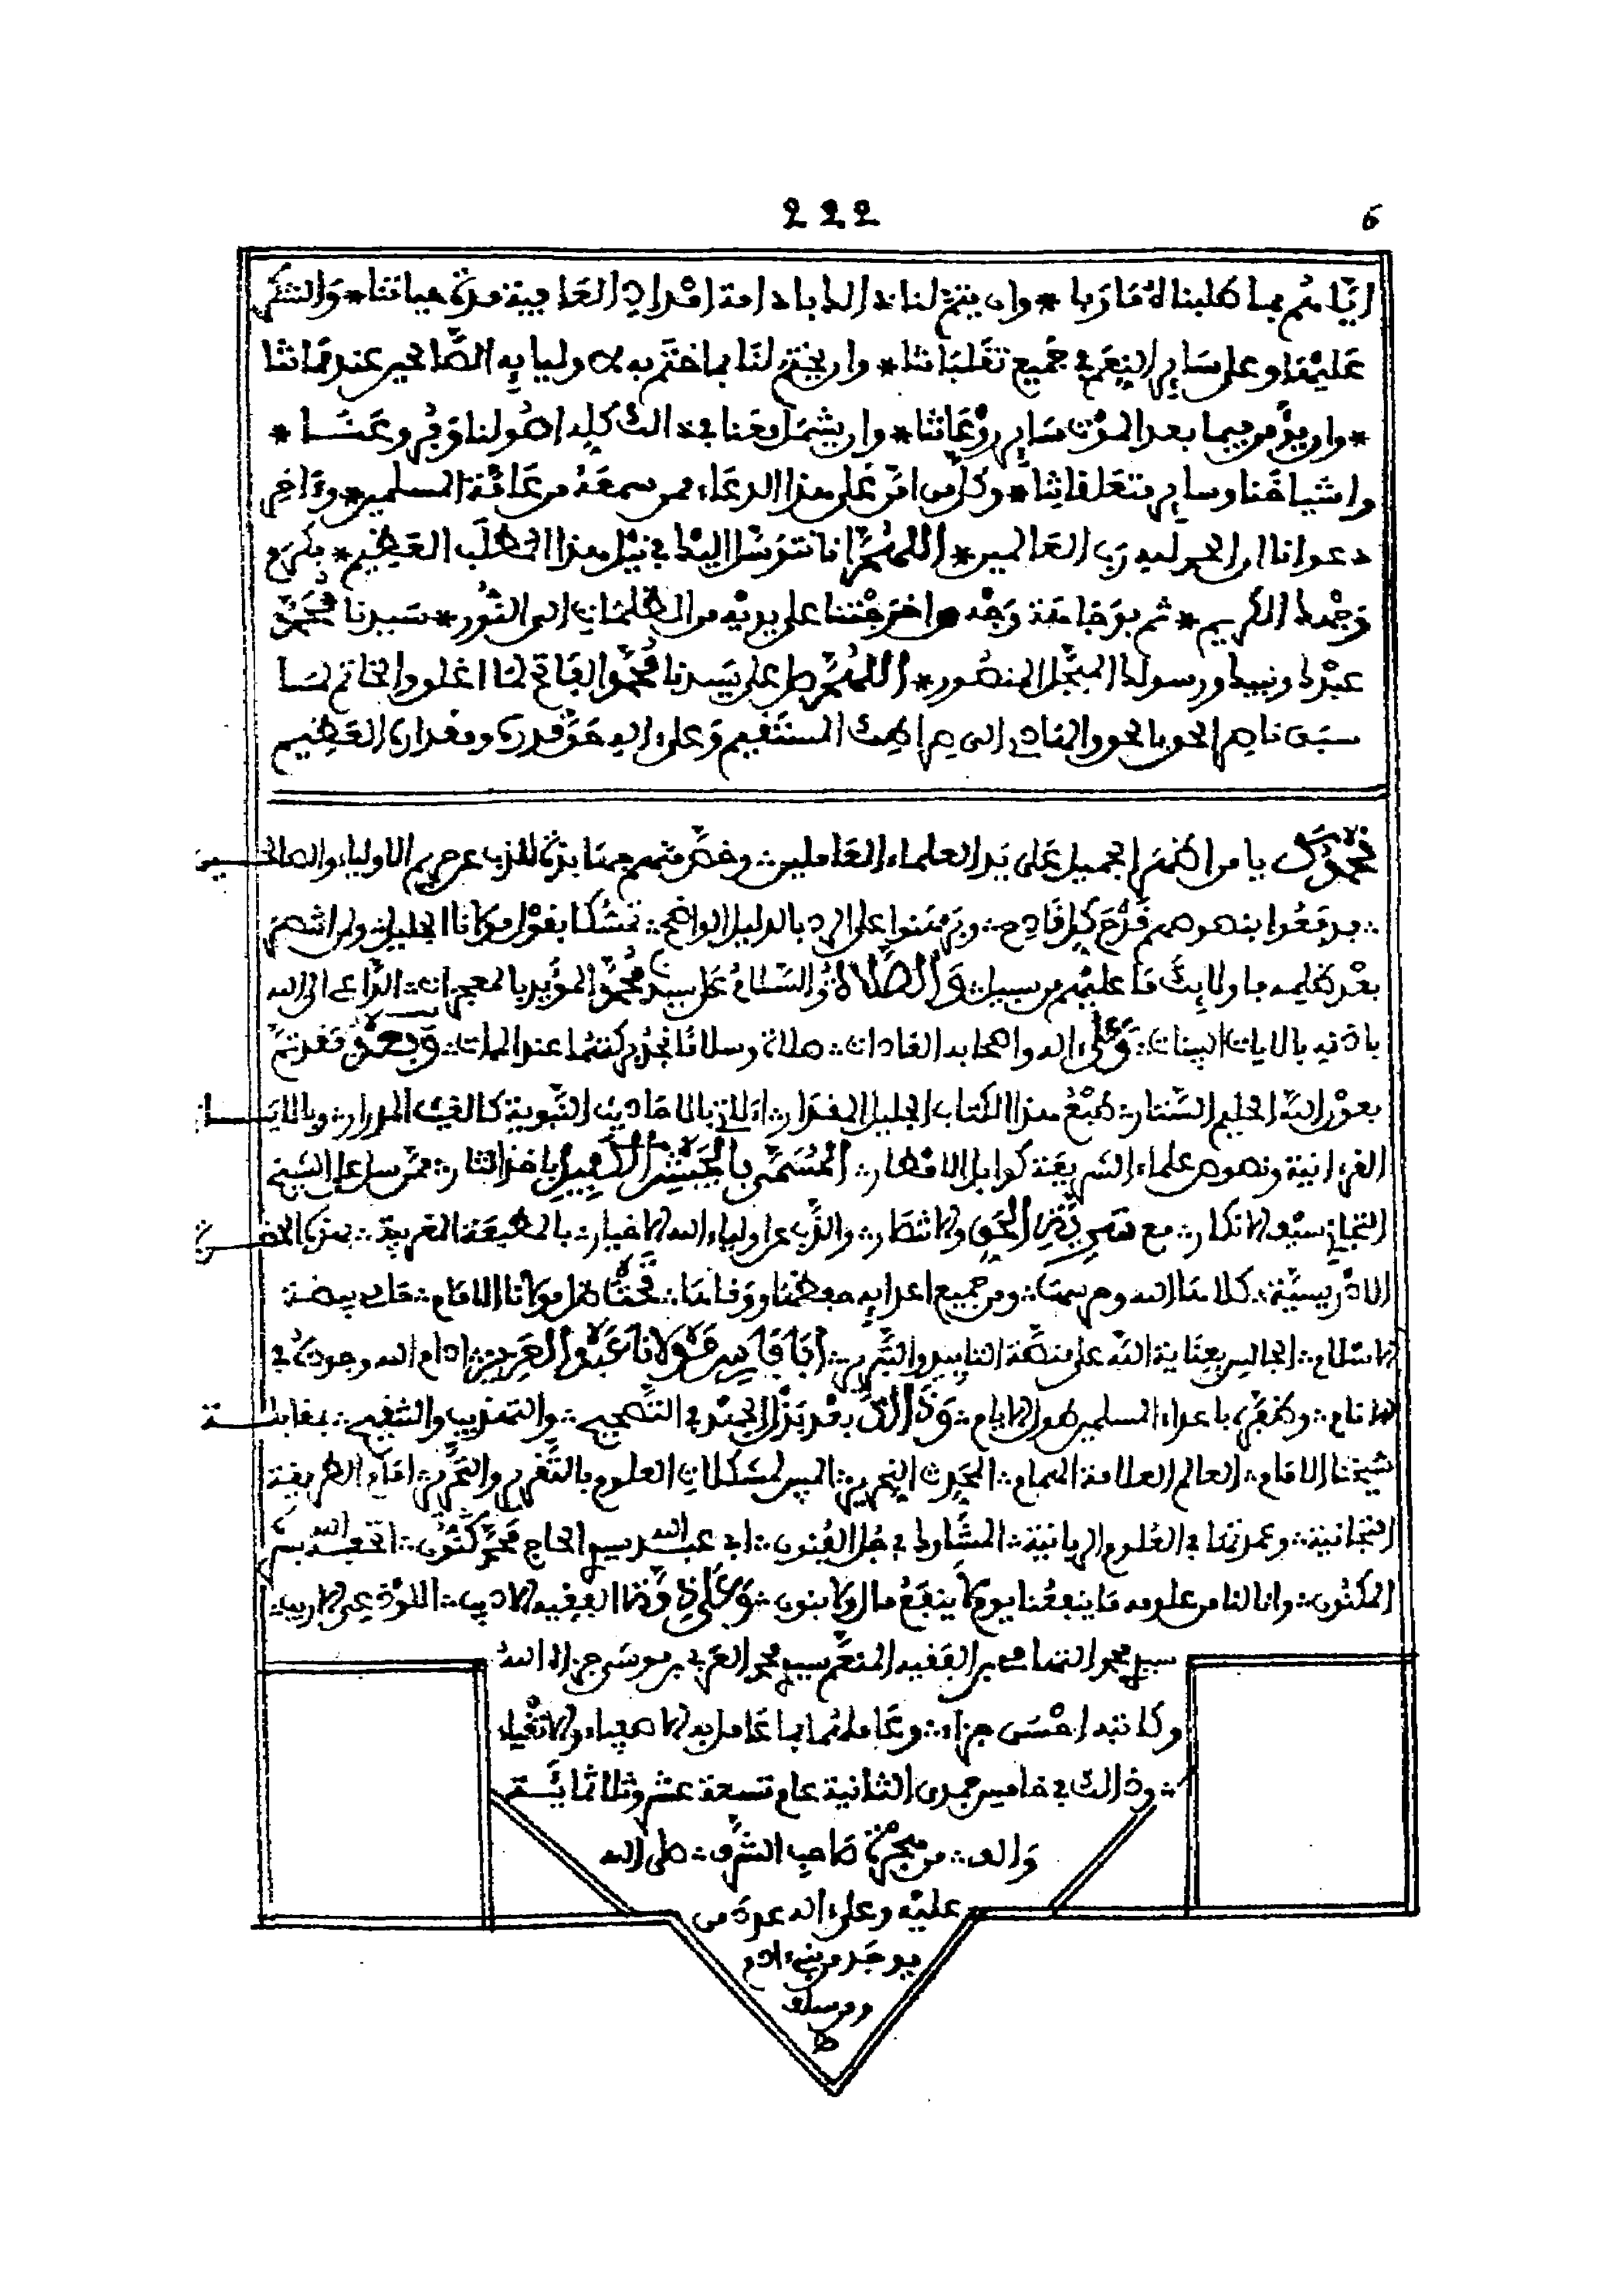 222 6
اياهم بما طلبنا لأقاربنا * وان يتم لنا ذالك بادامة امداد العافية مدة حياتنا * والشكر
عليها وعلى ساير النعم في جميع تقلباتنا * وان يختم لنا بما ختم به لاوليايه الصالحين عند مماتنا
* وان يؤمن فيما بعد الموت ساير روعاتنا * وان يشمل معنا في ذالك كله اصولنا وفروعنا *
واشياخنا وساير متعلقاتنا * وكل من امن على هذا الدعاء ممن سمعه من عامة المسلمين * وءاخر
دعوانا ان الحمد لله رب العالمين * اللهم انا نتوسل اليك في نيل هذا المطلب العظيم * بكرم
وجهك الكريم * ثم بوجاهة وجه من اخرجتنا على يديه من الظلمات الى النور * سيدنا محمد
عبدك ونبيك ورسولك المبجل المنصور * اللهم صل على سيدنا محمد الفاتح لما اغلق والخاتم لما
سبق ناصر الحق بالحق والهادي الى صراطك المستقيم وعلى ءاله حق قدره ومقداره العظيم
نحمدك يا من اظهر الجميل على يد العلماء العاملين ؞ وخص منهم جهابذة للذب عن حريم الاولياء والصالحين
؞ فدفعوا بنصوصهم قدح كل قادح ؞ وبرهنوا على الرد بالدليل الواضح ؞ تمسكا بقول مولانا الجليل ؞ ولمن انتصر
بعد ظلمه فاولائك ما عليهم من سبيل ؞ والصلاة والسلام على سيدنا محمد المؤيد بالمعجزات ؞ الداعي الى الله
باذنه بالايات البينات ؞ وعلى ءاله واصحابه القادات ؞ صلاة وسلاما نجد بركتهما عند الممات ؞ وبعد فقد تم
بعون الله الحليم الستار ؞ طبع هذا الكتاب الجليل المقدار ؞ الاتي بالاحاديث النبوية كالغيث المدرار ؞ وبالايات
القرءانية ونصوص علماء الشريعة كوابل الامطار ؞ المسمى بالجيش الكبير باخذ الثار ؞ ممن سل على الشيخ
التجاني سيف الانكار ؞ مع نصر الحق والانتصار ؞ والذب عن اولياء الله الاخيار ؞ بالمطبعة المغربية ؞ بفاس الحضرة
الادريسية ؞ كلاها الله وحرسها ؞ ومن جميع اعدايه حفظها ووقاها ؞ تحت ظل مولانا الامام ؞ حامي بيضة
الاسلام ؞ الجالس بعناية الله على منصة التاييد والتبرير ؞ ابا فارس مولانا عبد العزيز ؞ ادام الله وجوده في
الانام ؞ وظفره باعداء المسلمين طول الايام ؞ وذالك بعد بذل الجهد في التصحيح ؞ والتهذيب والتنقيح ؞ بمقابلة
شيخنا الامام ؞ العالم العلامة الهمام ؞ المحدث النحرير ؞ الميسر لمشكلات العلوم بالتقرير والتحرير ؞ امام الطريقة
التجانية ؞ وعمدتها في العلوم الربانية ؞ المشارك في جل الفنون ؞ ابي عبد الله سيدي الحاج محمد كنون ؞ اتحفه الله بسره
المكنون ؞ وانالنا من علومه ما ينفعنا يوم لا ينفع مال ولا بنون ؞ وعلى ذمة الفقيه الاديب ؞ اللوذعي الاريب ؞
سيدي محمد التهامي بن الفقيه المنعم سيدي محمد العربي بن موسى جزاه الله
وكاتبه احسن جزاء ؞ وعاملهما بما عامل به الاصفياء والاتقياء
؞ وذالك في خامس جمدى الثانية عام تسعة عشر وثلاثمائة
والف ؞ من هجرة صاحب الشرف ؞ صلى الله
عليه وعلى ءاله عدد من
يوجد من بني ءادم
ومن سلف
ط